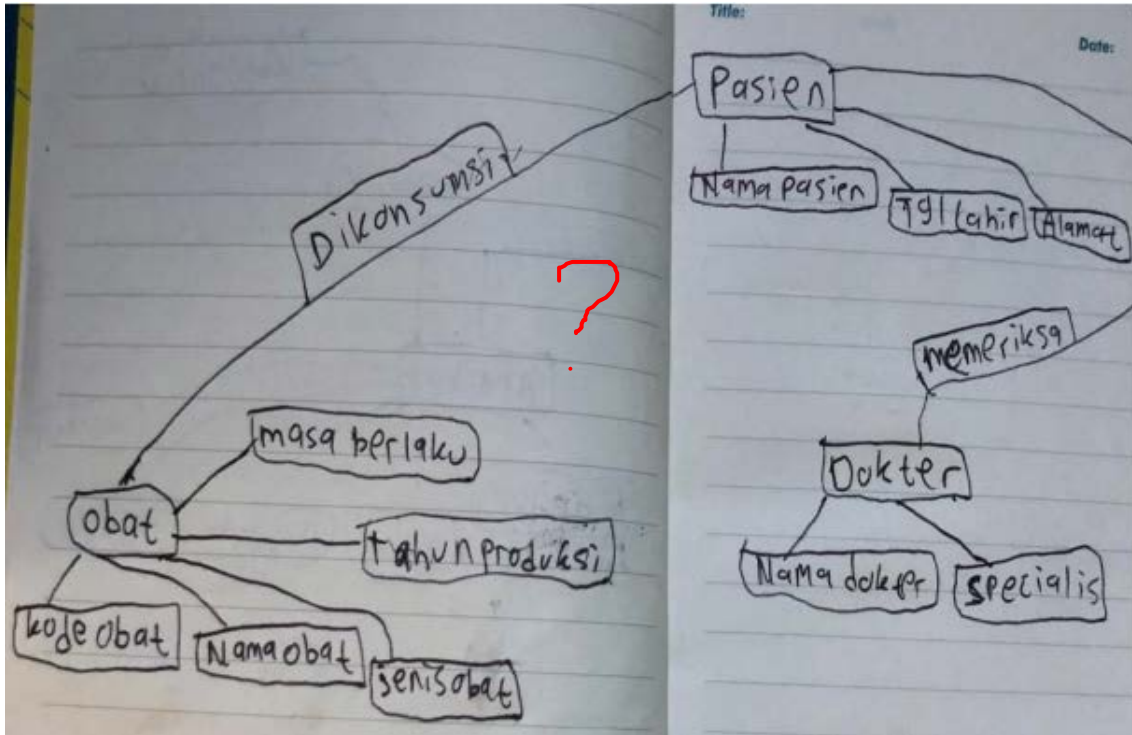 Title:
Date:
Pasien
Nama pasien
Tgl Lahir
Alamat
Dikonsumsi
?
memeriksa
masa berlaku
Dokter
obat
tahun produksi
Nama dokter
specialis
kode obat
Nama obat
jenis obat